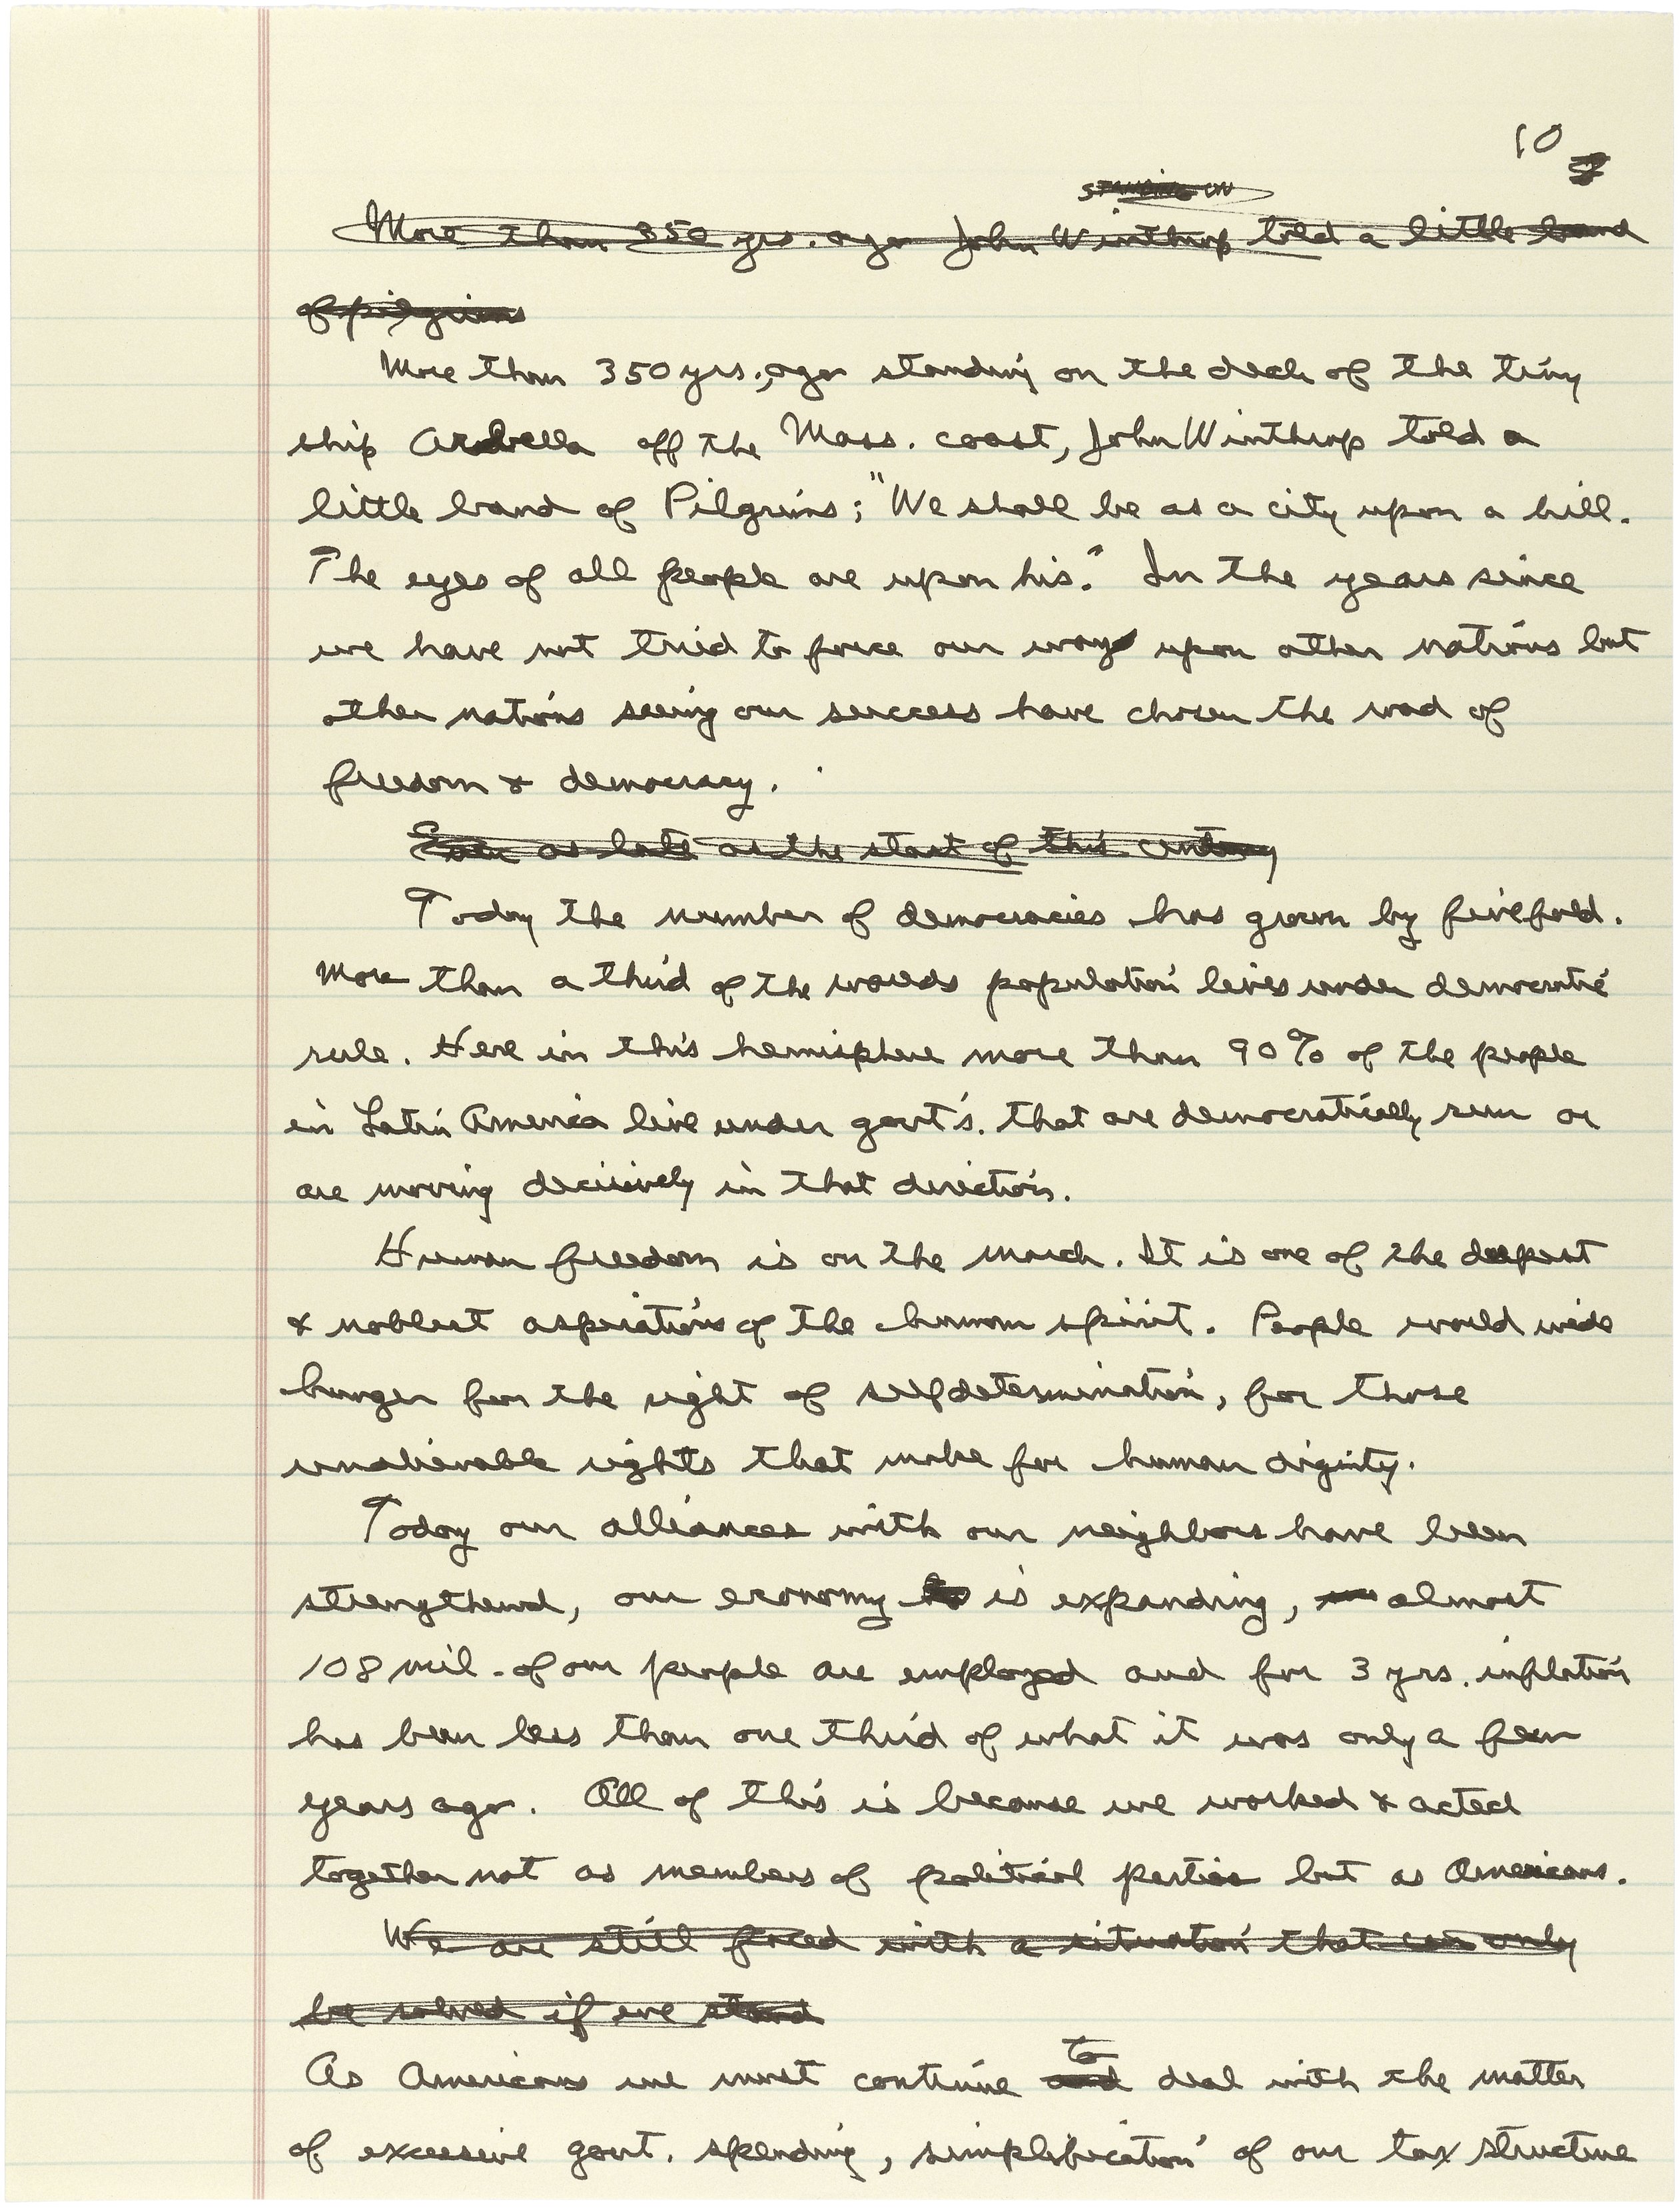 10
standing on
More than 350 yrs. ago John Winthrop told a little band
of pilgrims
More than 350 yrs., ago standing on the deck of the tiny
ship Arabella off the Mass. coast, John Winthrop told a
little band of Pilgrims; "We shall be as a city upon a hill.
The eyes of all people are upon his." In the years since
we have not tried to force our way upon other nations but
other nations seeing our success have chosen the road of
freedom & democracy.
Even as late as the start of this century
Today the number of democracies has grown by fivefold.
More than a third of the worlds population lives under democratic
rule. Here in this hemisphere more than 90% of the people
in Latin America live under govt's. that are democratically run or
are moving decisively in that direction.
Human freedom is on the march. It is one of the deepest
& noblest aspirations of the human spirit. People world wide
hunger for the right of self determination, for those
unalienable rights that make for human dignity.
Today our alliances with our neighbors have been
strengthened, our economy is expanding, almost
108 mil. of our people are employed and for 3 yrs. inflation
has been less than one third of what it was only a few
years ago. All of this is because we worked & acted
together not as members of political parties but as Americans.
We are still faced with a situation that can only
be solved if we stand
to
As Americans we must continue and deal with the matter
of excessive govt. spending, simplification of our tax structure